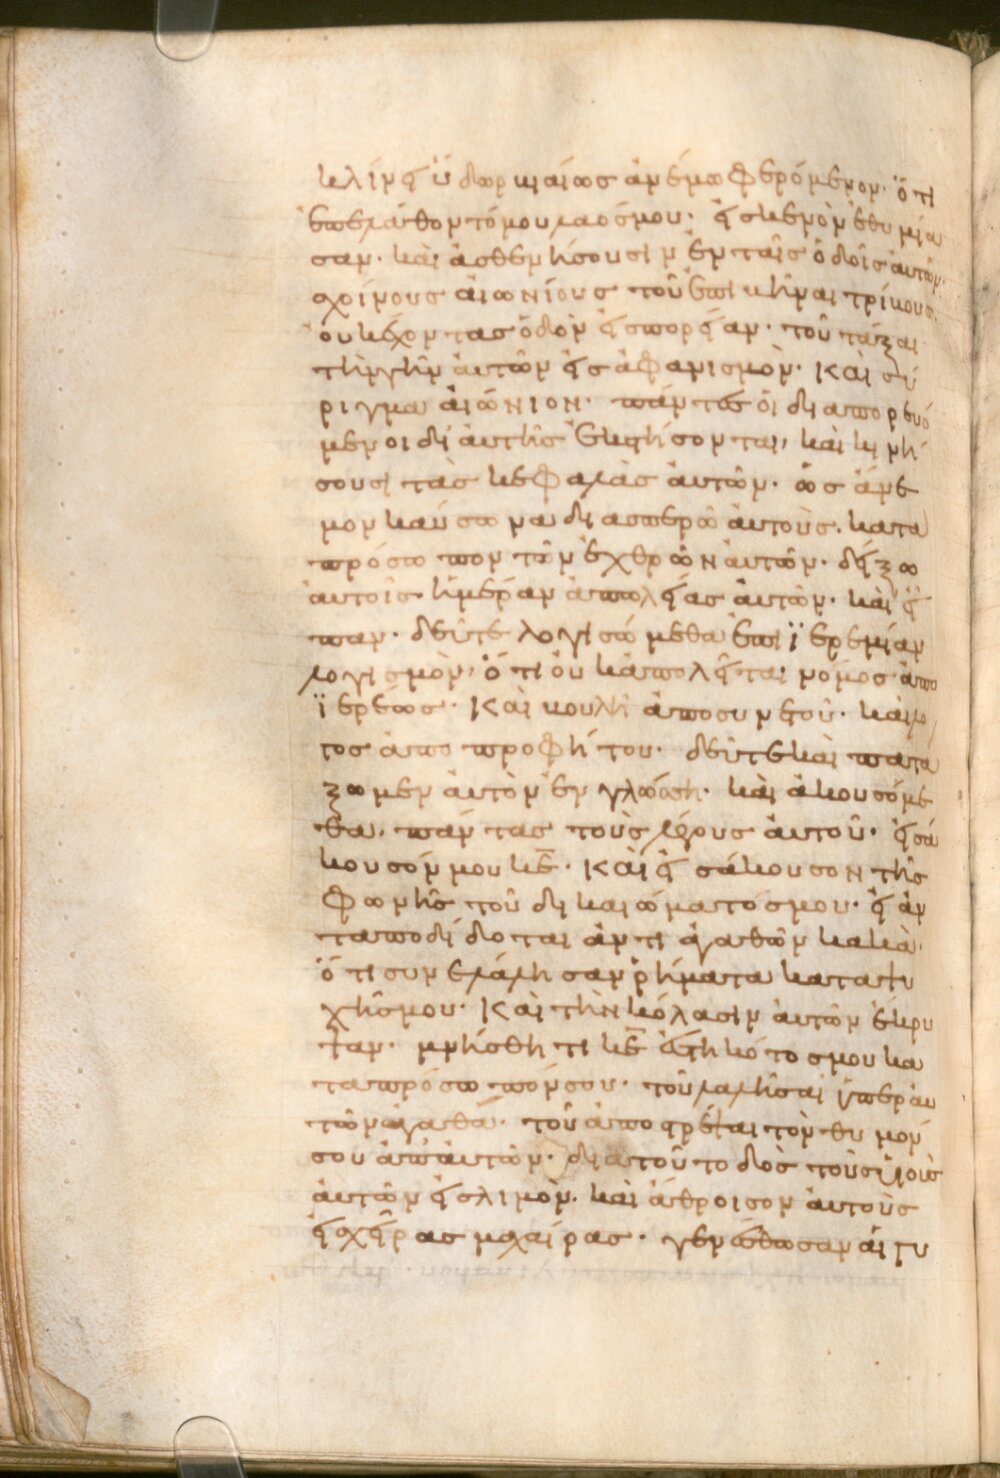 κλίνει ὕδωρ βιαίως ἀνέμω φερόμενον· ὅτι
ἐπελάθοντό μου λαός μου· εἰς κενὸν ἐθυμία
σαν· καὶ ἀσθενήσουσιν ἐν ταῖς ὁδοῖς αὐτῶν·
σχοίνους αἰωνίους τοῦ ἐπιβῆναι τρίβους
οὐκ ἔχοντας ὁδὸν εἰς πορείαν· τοῦ τάξαι
τὴν γῆν αὐτῶν εἰς ἀφανισμὸν· καὶ σύ
ριγμα αἰώνιον· πάντες οἱ διαπορευό
μενοι δι αὐτῆς ἐκστήσονται, καὶ κινή
σουσι τὰς κεφαλὰς αὐτῶν· ὡς ἄνε
μον καύσωνα διασπερῶ αὐτοὺς· κατα
πρόσωπον τῶν ἐχθρῶν αὐτῶν· δείξω
αὐτοῖς ἡμέραν ἀπωλείας αὐτῶν· καὶ εἶ
παν· δεῦτε λογισώμεθα ἐπι ϊερεμίαν
λογισμὸν· ὅτι οὐκ ἀπολεῖται νόμος ἀπο
ϊερέως· καὶ βουλὴ ἀπο συνετοῦ· καὶ λό
γος ἀπο προφήτου· δεῦτε καὶ πατά
ξωμεν αὐτὸν ἐν γλώσση· καὶ ἀκουσόμε
θα, πάντας τοὺς λόγους αὐτοῦ· εἰσά
κουσόν μου κε· καὶ εἰσάκουσον τῆς
φωνῆς τοῦ δικαιώματός μου· εἰ ἀν
ταποδίδοται ἀντι ἀγαθῶν κακὰ·
ὅτι συνελάλησαν ῥήματα κατα ψυ
χῆς μου· καὶ τὴν κόλασιν αὐτῶν ἔκρυ
ψαν· μνήσθητι κε ἑστηκότος μου κα
τα πρόσωπόν σου· τοῦ λαλῆσαι ὑπερ αυ
τῶν ἀγαθά· τοῦ ἀποστρέψαι τὸν θυμόν
σου ἀπ' αὐτῶν· δια τοῦτο δὸς τοὺς υἱοὺς
αὐτῶν εἰς λιμὸν· καὶ ἄθροισον αὐτοὺς
εἰς χεῖρας μαχαίρας· γενέσθωσαν αἱ γυ